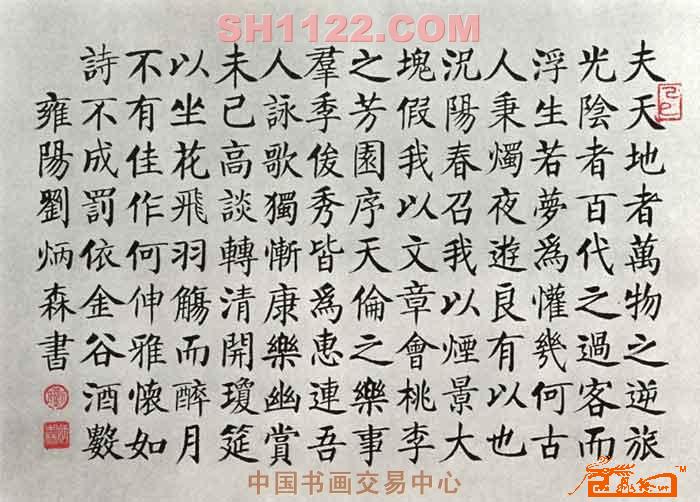 SH1122.COM
夫天地者萬物之逆旅
光陰者百代之過客而
浮生若夢爲懽幾何古
人秉燭夜遊良有以也
況陽春召我以煙景大
塊假我以文章會桃李
之芳園序天倫之樂事
羣季俊秀皆爲惠連吾
人詠歌獨慚康樂幽賞
未已高談轉清開瓊筵
以坐花飛羽觴而醉月
不有佳作何伸雅懷如
詩不成罰依金谷酒數
雍陽劉炳森書
中国书画交易中心